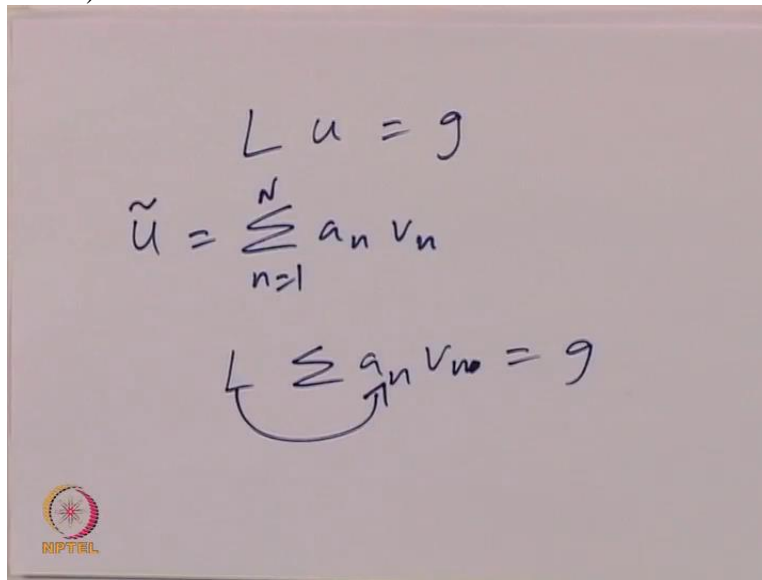 L u = g
ũ = ∑_{n=1}^{N} a_n v_n
L ∑ a_n v_n = g
NPTEL